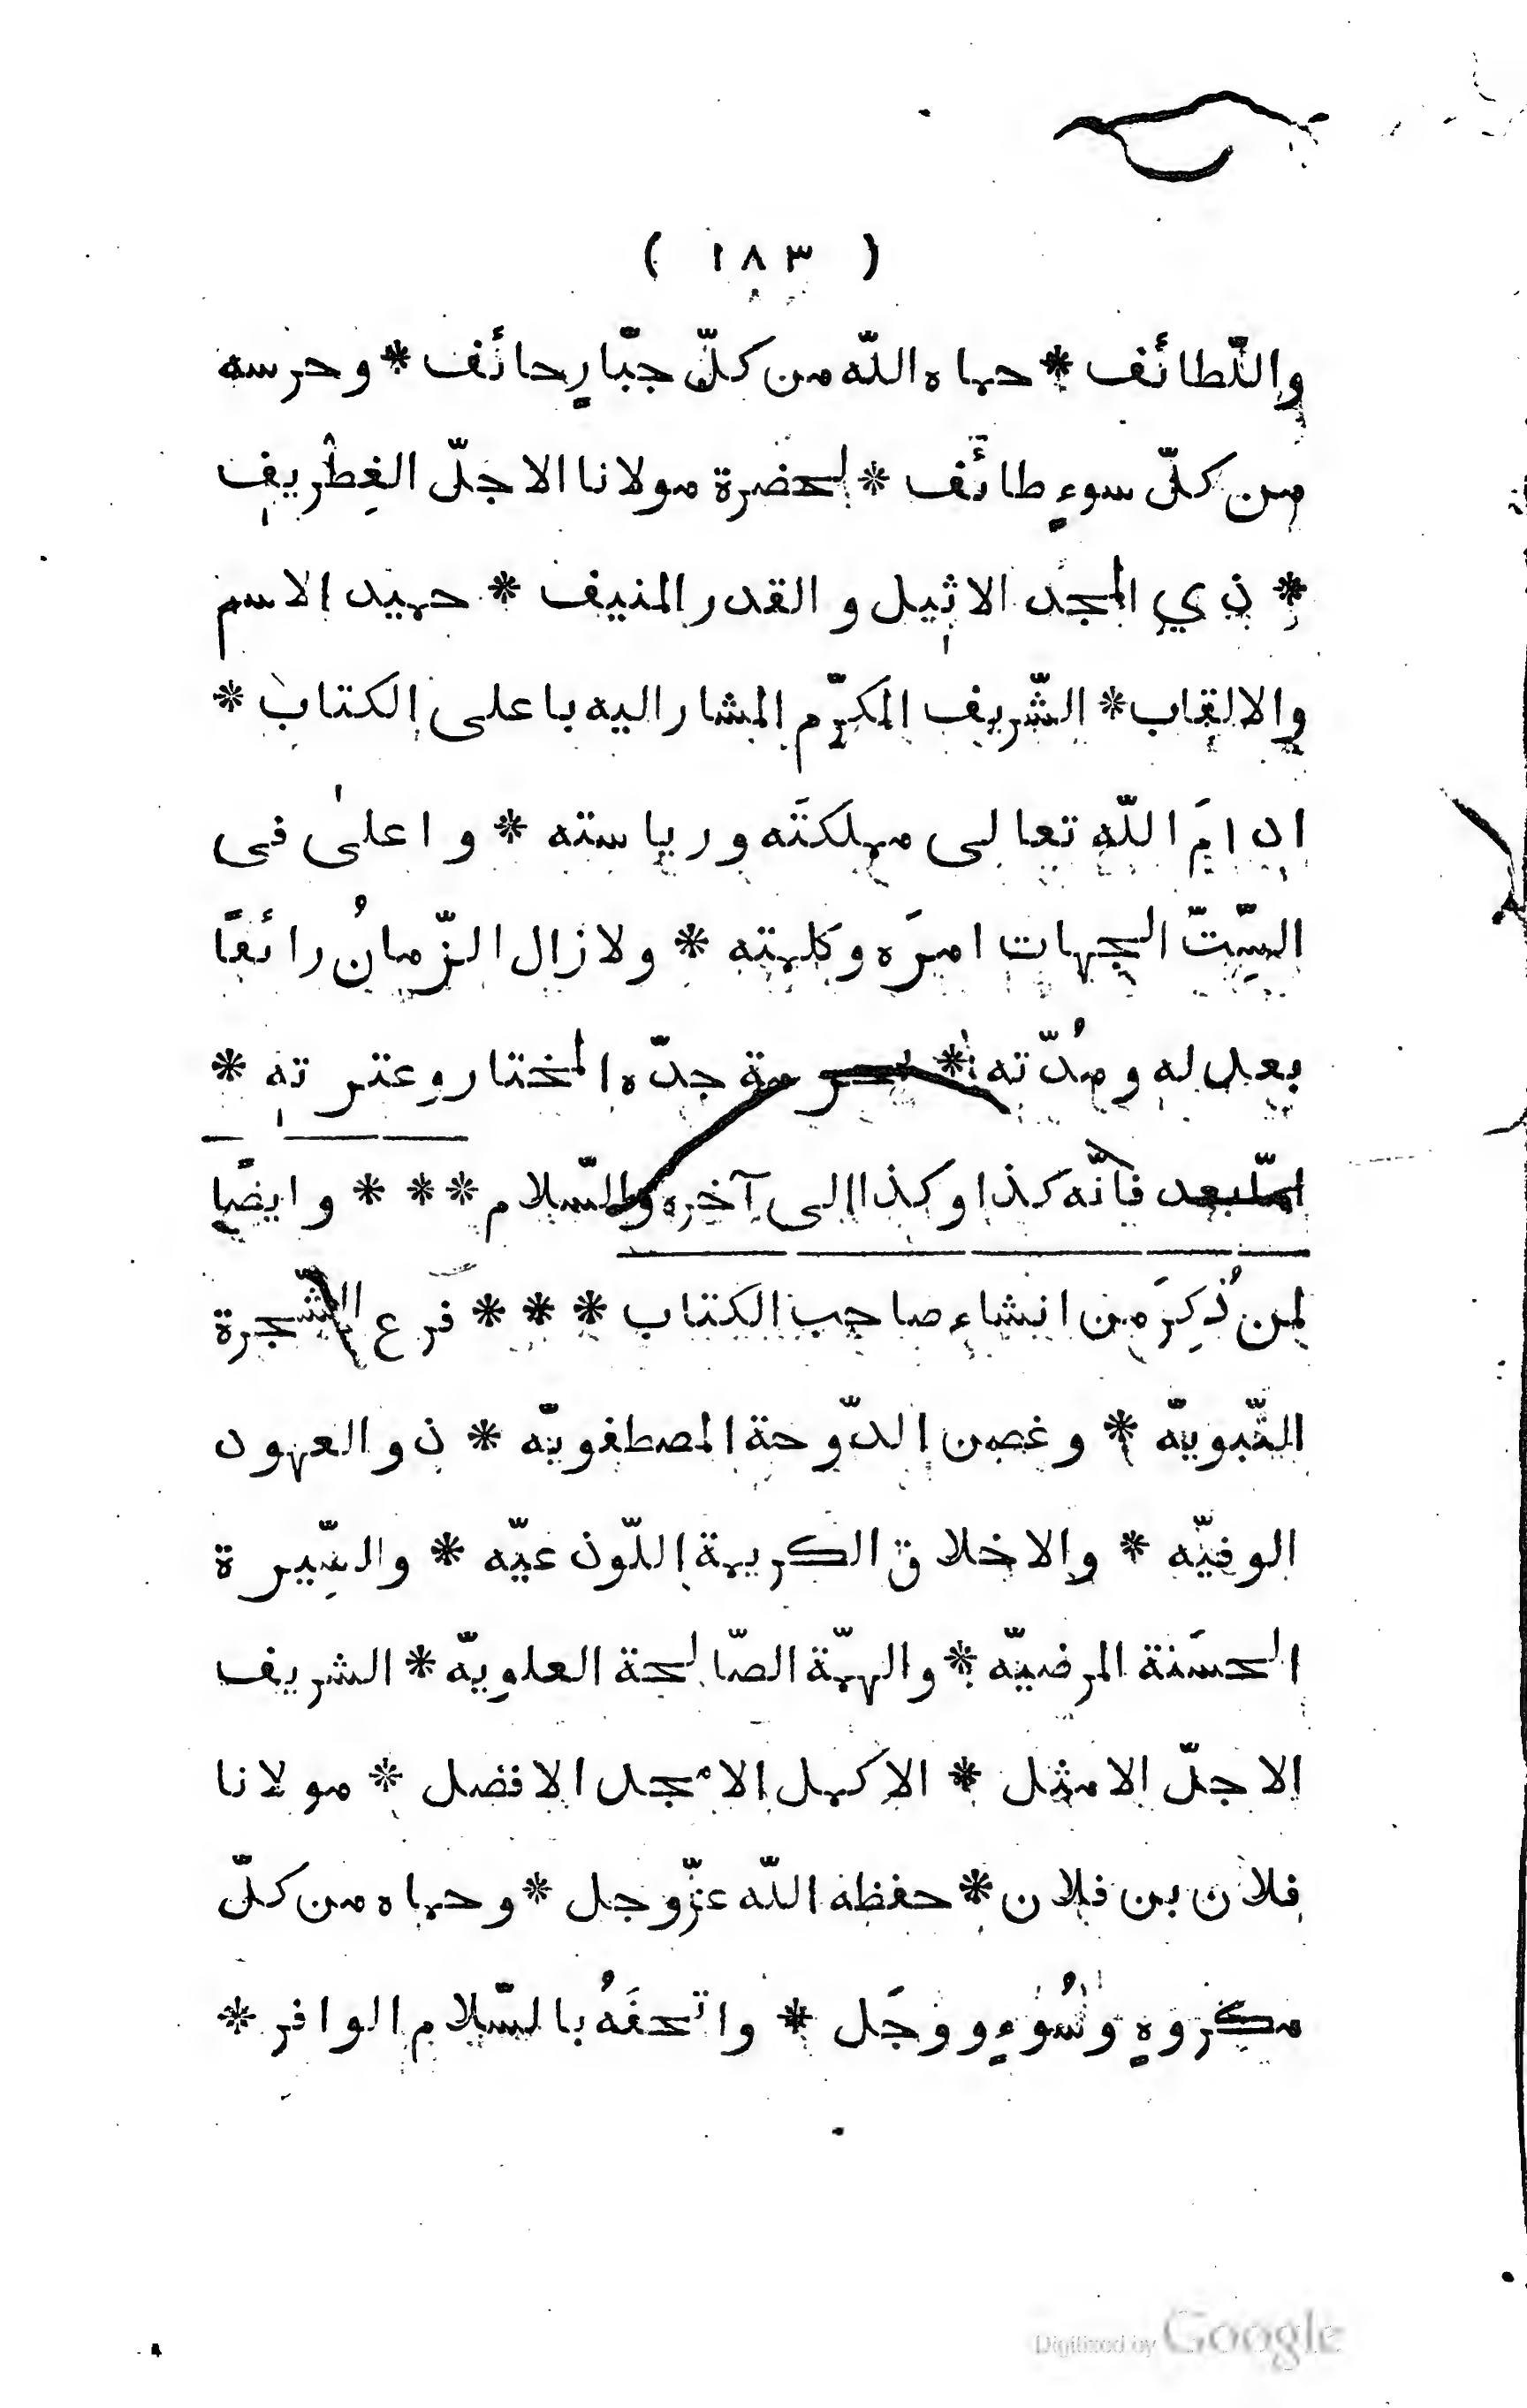 ( ١٨٣ )
واللّطائف * حماه اللّه من كلّ جبّارٍ حائف * وحرسه
من كلّ سوءٍ طائف * لحضرة مولانا الاجلّ الغِطريف
* ذي المجد الاثيل والقدر المنيف * حميد الاسم
والالقاب * الشّريف المكرّم المشار اليه باعلى الكتاب *
ادامَ اللّه تعالى مملكتَه ورياسته * واعلىٰ فى
السِّتّ الجهات امرَه وكلمته * ولازال الزّمانُ رائقًا
بعدله ومُدّته * بحرمة جدّه المختار وعترته *
امّا بعد فانّه كذا وكذا الى آخره والسّلام * * * وايضًا
لمن ذُكِرَ من انشاء صاحب الكتاب * * * فرع الشّجرة
النّبويّه * وغصن الدّوحة المصطفويّه * ذو العهود
الوفيّه * والاخلاق الكريمة اللّوذعيّه * والسِّيرة
الحسَنة المرضيّه * والهمّة الصّالحة العلويّه * الشريف
الاجلّ الامثل * الاكمل الامجد الافضل * مولانا
فلان بن فلان * حفظه اللّه عزّوجل * وحماه من كلّ
مكروهٍ وسُوءٍ ووجَل * واتحفَهُ بالسّلام الوافر *
Digitized by Google